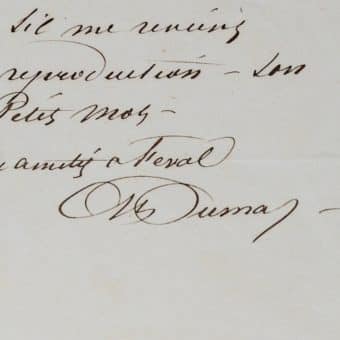 sil me rev
reproduction – son
Petit mot –
amitiés a Feval
Al Dumas –